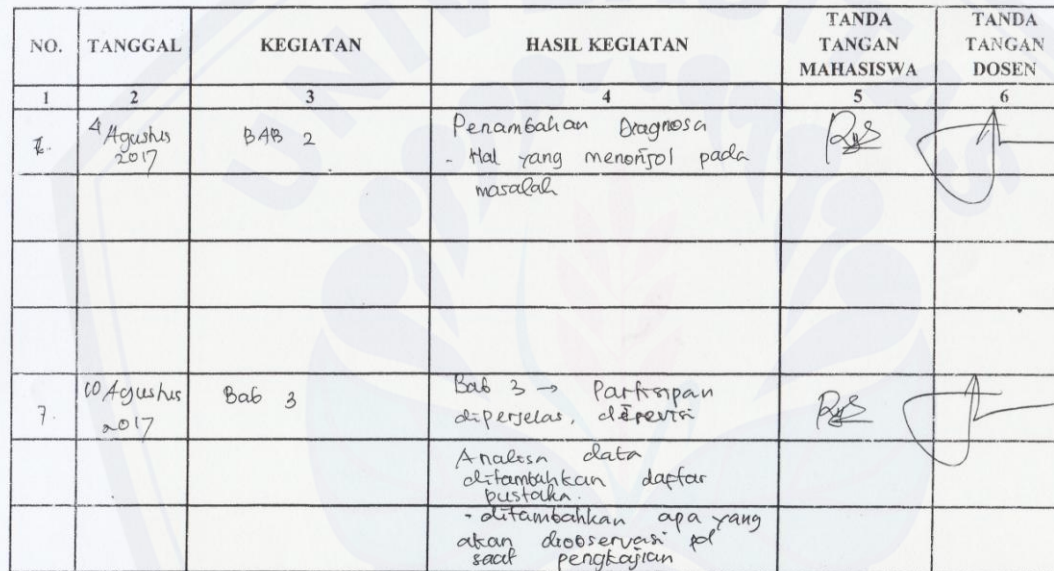 NO. TANGGAL KEGIATAN HASIL KEGIATAN TANDA TANGAN MAHASISWA TANDA TANGAN DOSEN
1 2 3 4 5 6
4 Agustus 2017 BAB 2 Penambahan Diagnosa
- Hal yang menonjol pada
masalah
7. 10 Agustus 2017 Bab 3 Bab 3 → Partisipan
diperjelas, direvisi
Analisa data
ditambahkan daftar
pustaka.
- ditambahkan apa yang
akan diobservasi pd
saat pengkajian